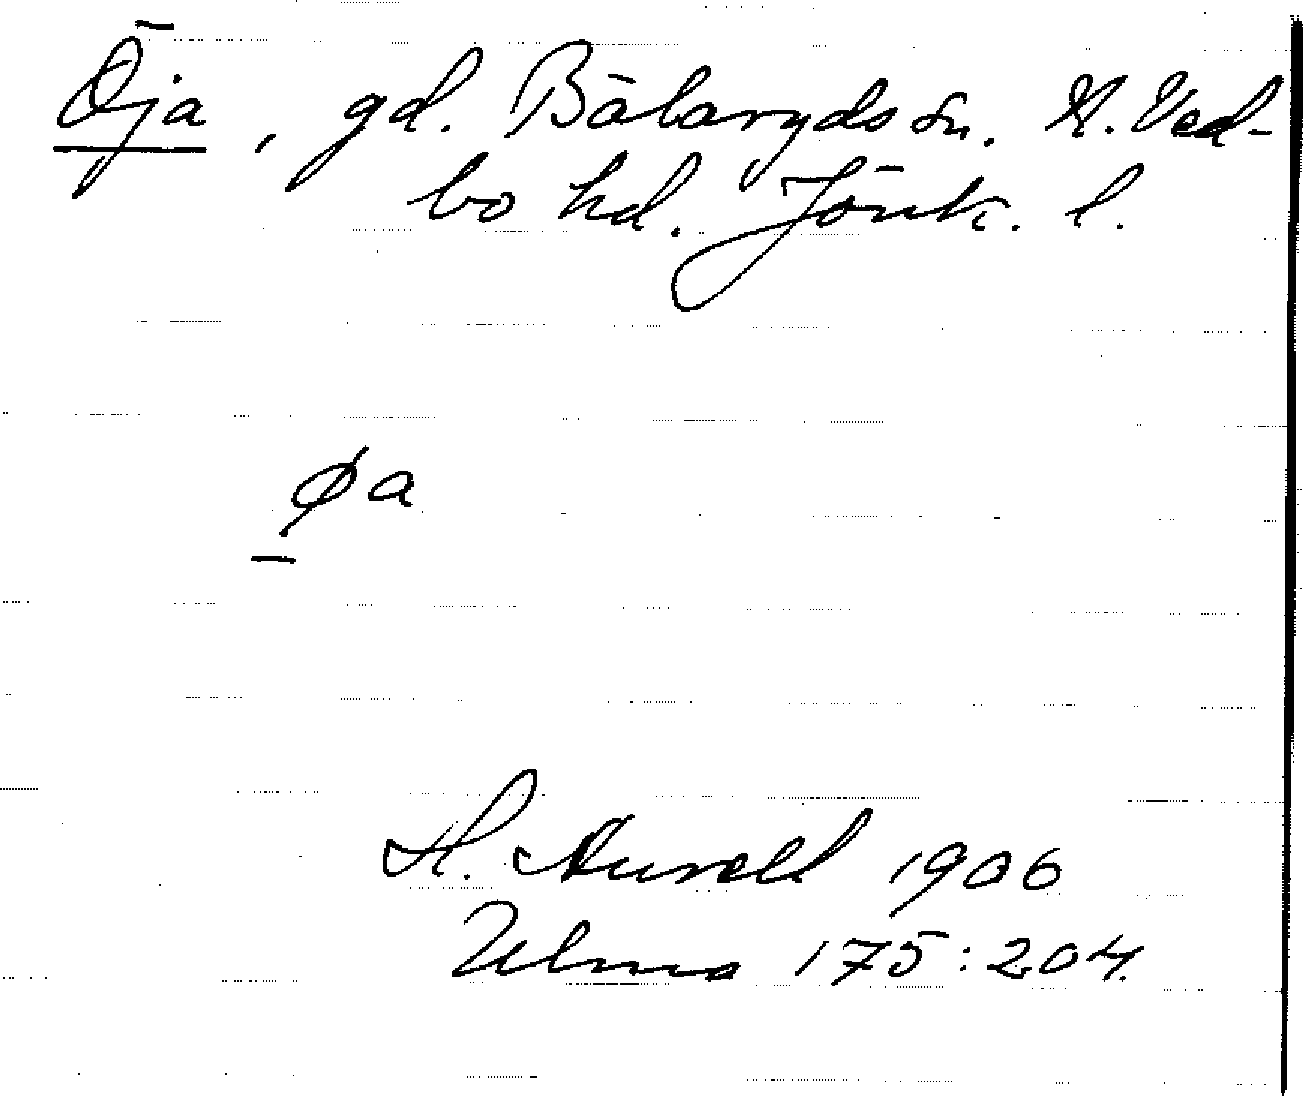 Öja, gd. Bälaryds sn. N. Ved-
bo hd. Jönk. l.
øa
H. Aurell 1906
Ulma 175:204.